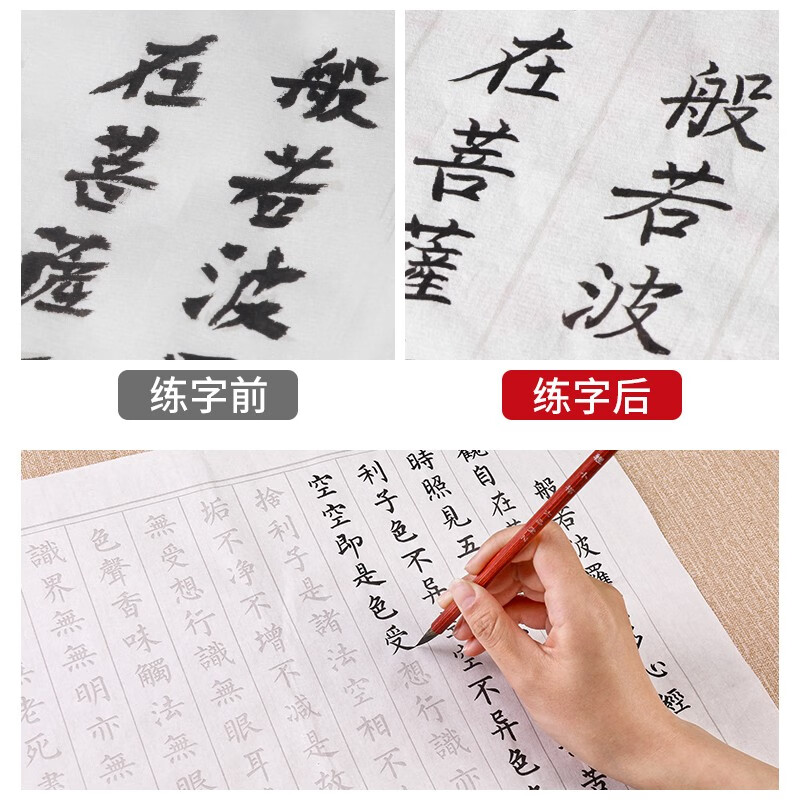 般若波
在菩薩
般若波
在菩薩
练字前
练字后
般若波羅
心經
觀自在
時照見五
苦
利子色不异空不异色
空空即是色受想行識亦
捨利子是諸法空相不
垢不净不增不減是故
無受想行識無眼耳
色聲香味觸法無眼
識界無無明亦無
老死盡